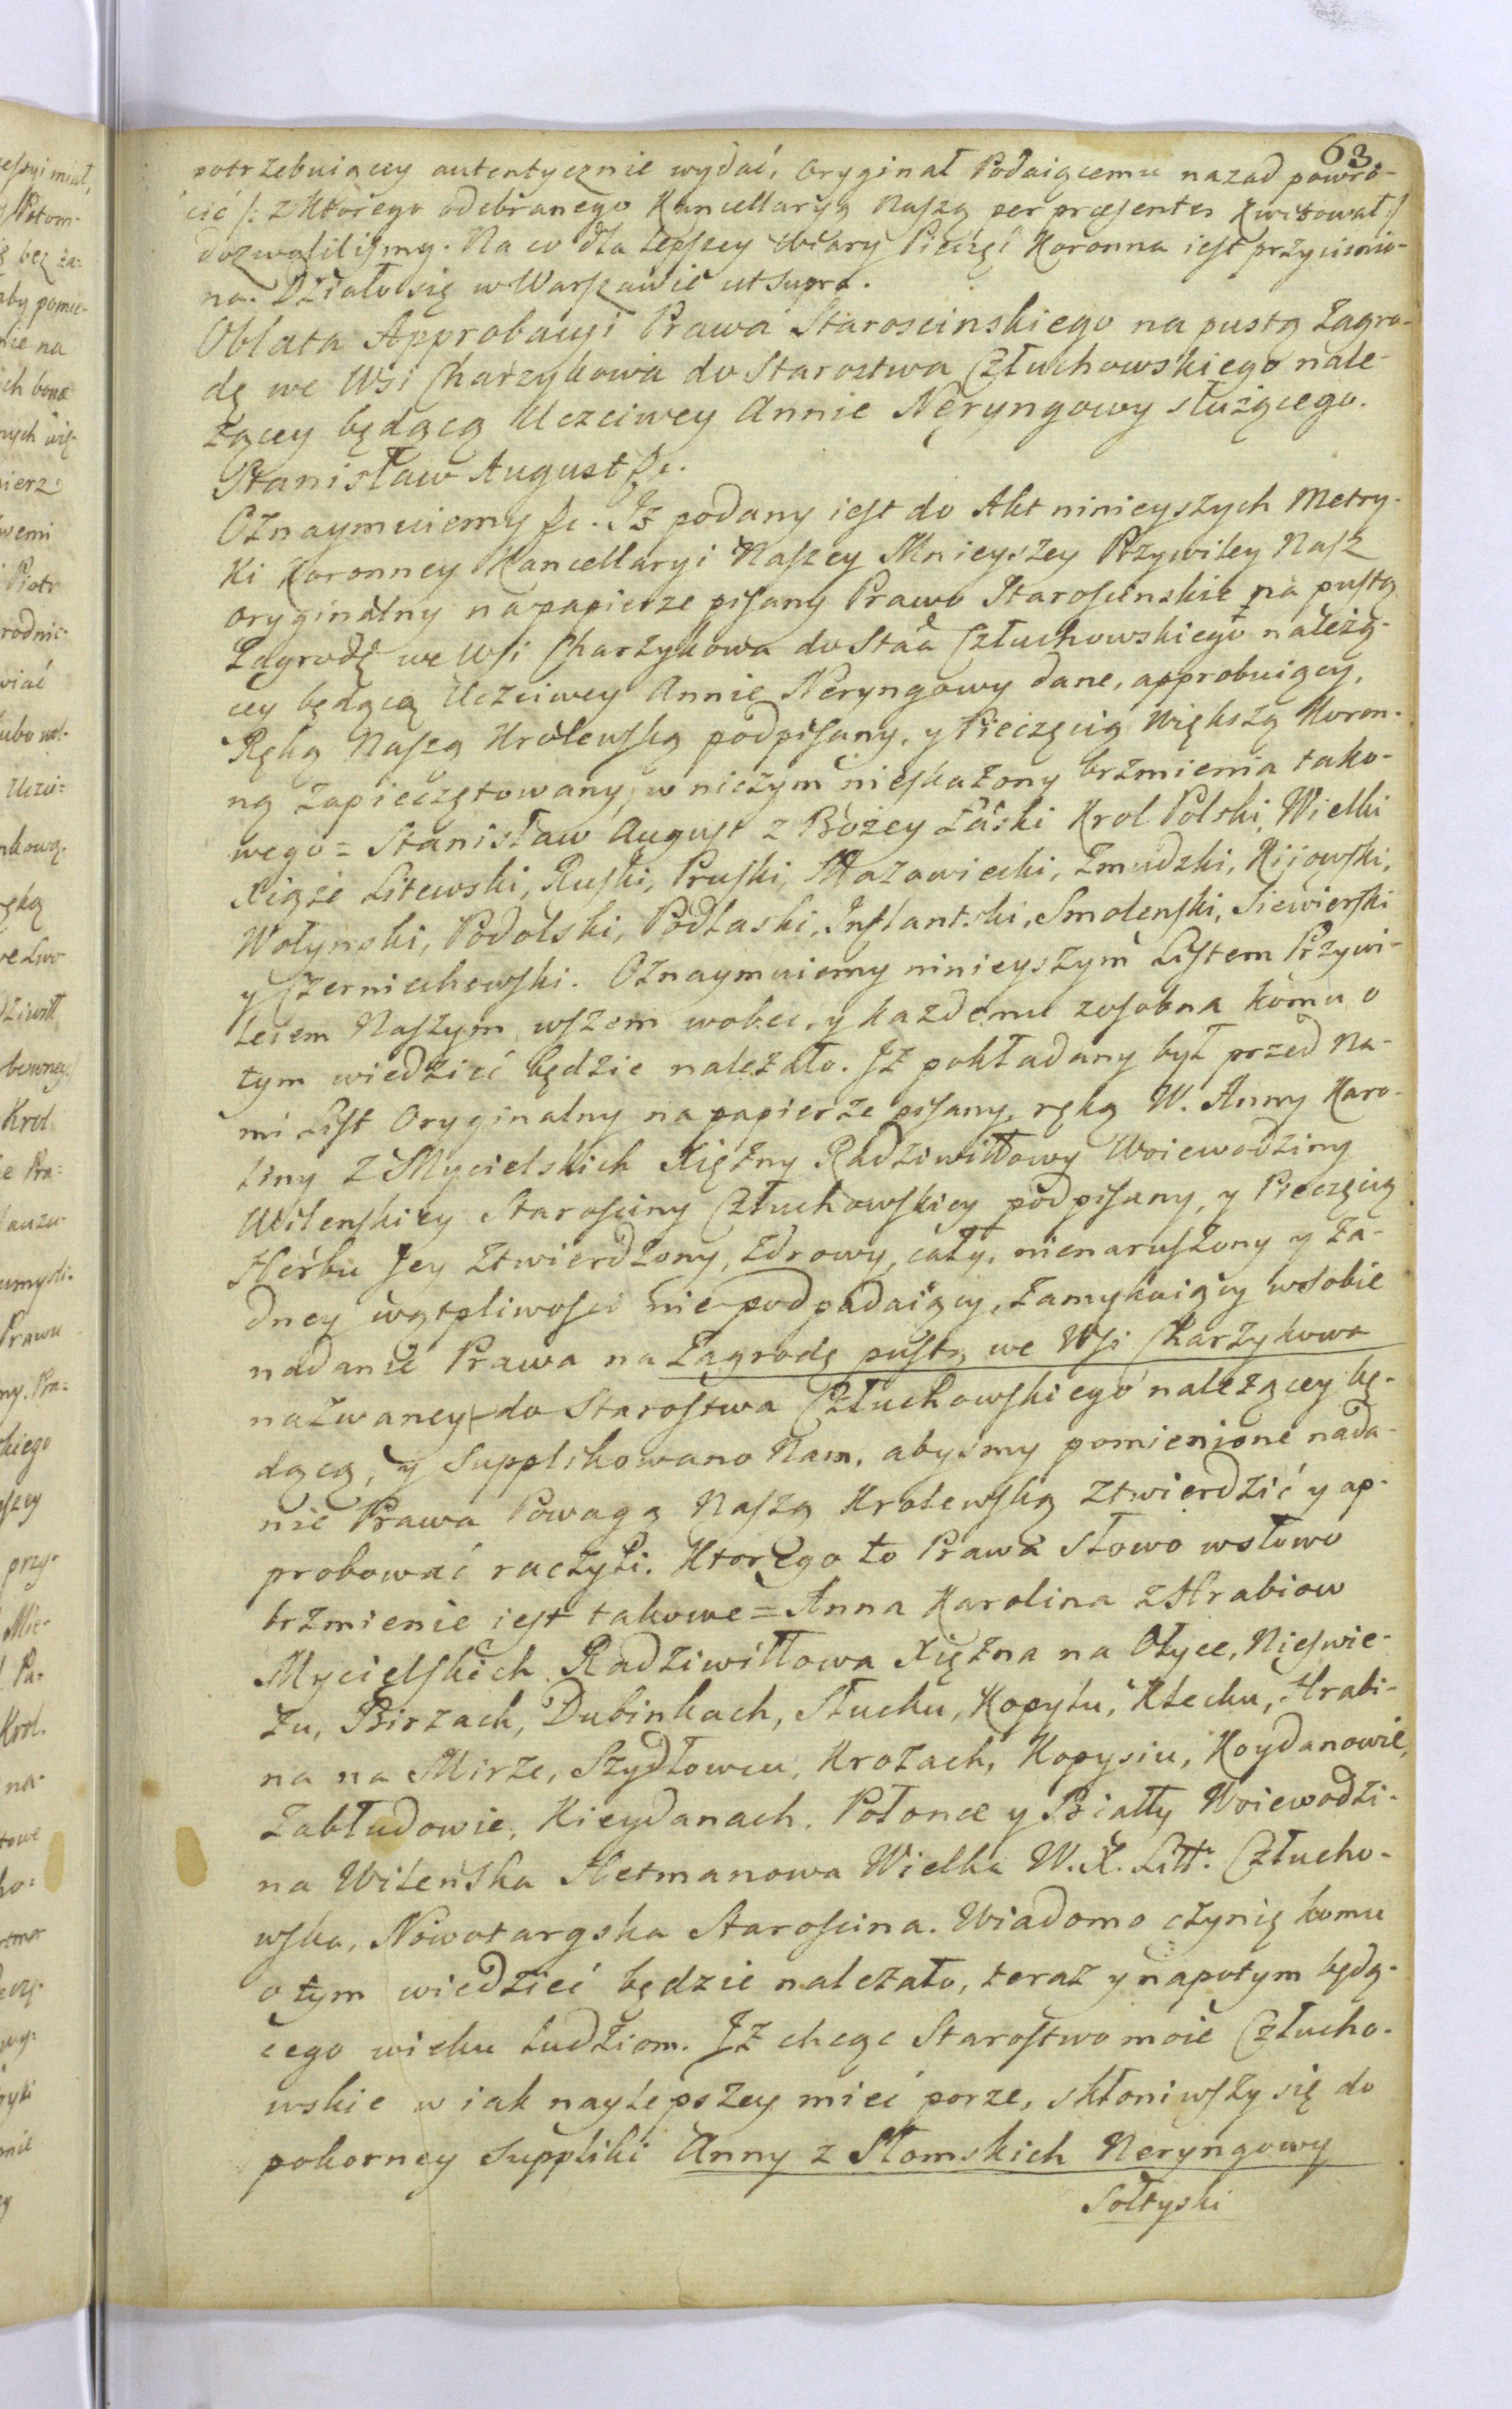 63.
potrzebuiącey autentycznie wydać, Oryginał Podaiącemu nazad powró-
cić /: z ktorego odebranego Kancellaryą Naszą per præsentes kwitował :/
dozwoliliśmy. Na co dla lepszey Wiary Pieczęć Koronna iest przyciśnio-
na. Działo się w Warszawie ut supra.
Oblata Approbacyi Prawa Staroscinskiego na pustą Zagro-
dę we Wsi Charzykowa do Starostwa Człuchowskiego nale-
żącey będącą Uczciwey Annie Neryngowy służącego.
Stanisław August &c.
Oznaymuiemy &c. Iż podany iest do Akt ninieyszych Metry-
ki Koronney Kancellaryi Naszey Mnieyszey Przywiley Nasz
oryginalny na papierze pisany Prawo Staroscinskie na pustą
Zagrodę we Wsi Charzykowa do Stаa Człuchowskiego należą-
cey będącą Uczciwey Annie Neryngowy dane, approbuiący,
Ręką Naszą Królewską podpisany, y Pieczęcią Większą Koron-
ną zapieczętowany, w niczym nieskażony brzmienia tako-
wego = Stanisław August z Bożey Łaski Krol Polski, Wielki
Xiąże Litewski, Ruski, Pruski, Mazowiecki, Zmudzki, Kijowski,
Wołynski, Podolski, Podlaski, Inflantski, Smolenski, Siewierski
y Czerniechowski. Oznaymuiemy ninieyszym Listem Przywi-
leiem Naszym wszem wobec, y każdemu zosobna komu o
tym wiedzieć będzie należało. Iż pokładany był przed Na-
mi List Oryginalny na papierze pisany, ręką W. Anny Karo-
liny z Mycielskich Xiężny Radziwiłłowy Woiewodziny
Wilenskiey Starosciny Człuchowskiey podpisany, y Pieczęcią
Herbu Jey ztwierdzony, zdrowy, cały, nienaruszony y ża-
dney wątpliwosci niepodpadaiący, zamykaiący w sobie
nadanie Prawa na Zagrodę pustą we Wsi Charzykowo
nazwaney do Starostwa Człuchowskiego należącey bę-
dącą, y Supplikowano Nam, abyśmy pomienione nada-
nie Prawa Powagą Naszą Krolewską ztwierdzić y ap-
probować raczyli. Ktorego to Prawa słowo wsłowo
brzmienie iest takowe = Anna Karolina z Hrabiow
Mycielskich Radziwiłłowa Xiężna na Ołyce, Nieswie-
żu, Birzach, Dubinkach, Słucku, Kopylu, Klecku, Hrabi-
na na Mirze, Szydłowcu, Krożach, Kopysiu, Koydanowie,
Zabłudowie, Kieydanach, Połonce y Biały Woiewodzi-
na Wileńska Hetmanowa Wielka W. X. Litt. Człucho-
wska, Nowotargska Staroscina. Wiadomo czynię komu
o tym wiedzieć będzie należało, teraz y napotym będą-
cego wieku ludziom. Iż chcąc Starostwo moie Człucho-
wskie w iak naylepszey mieć porze, skłoniwszy się do
pokorney suppliki Anny z Słomskich Neryngowy
Sołtyski